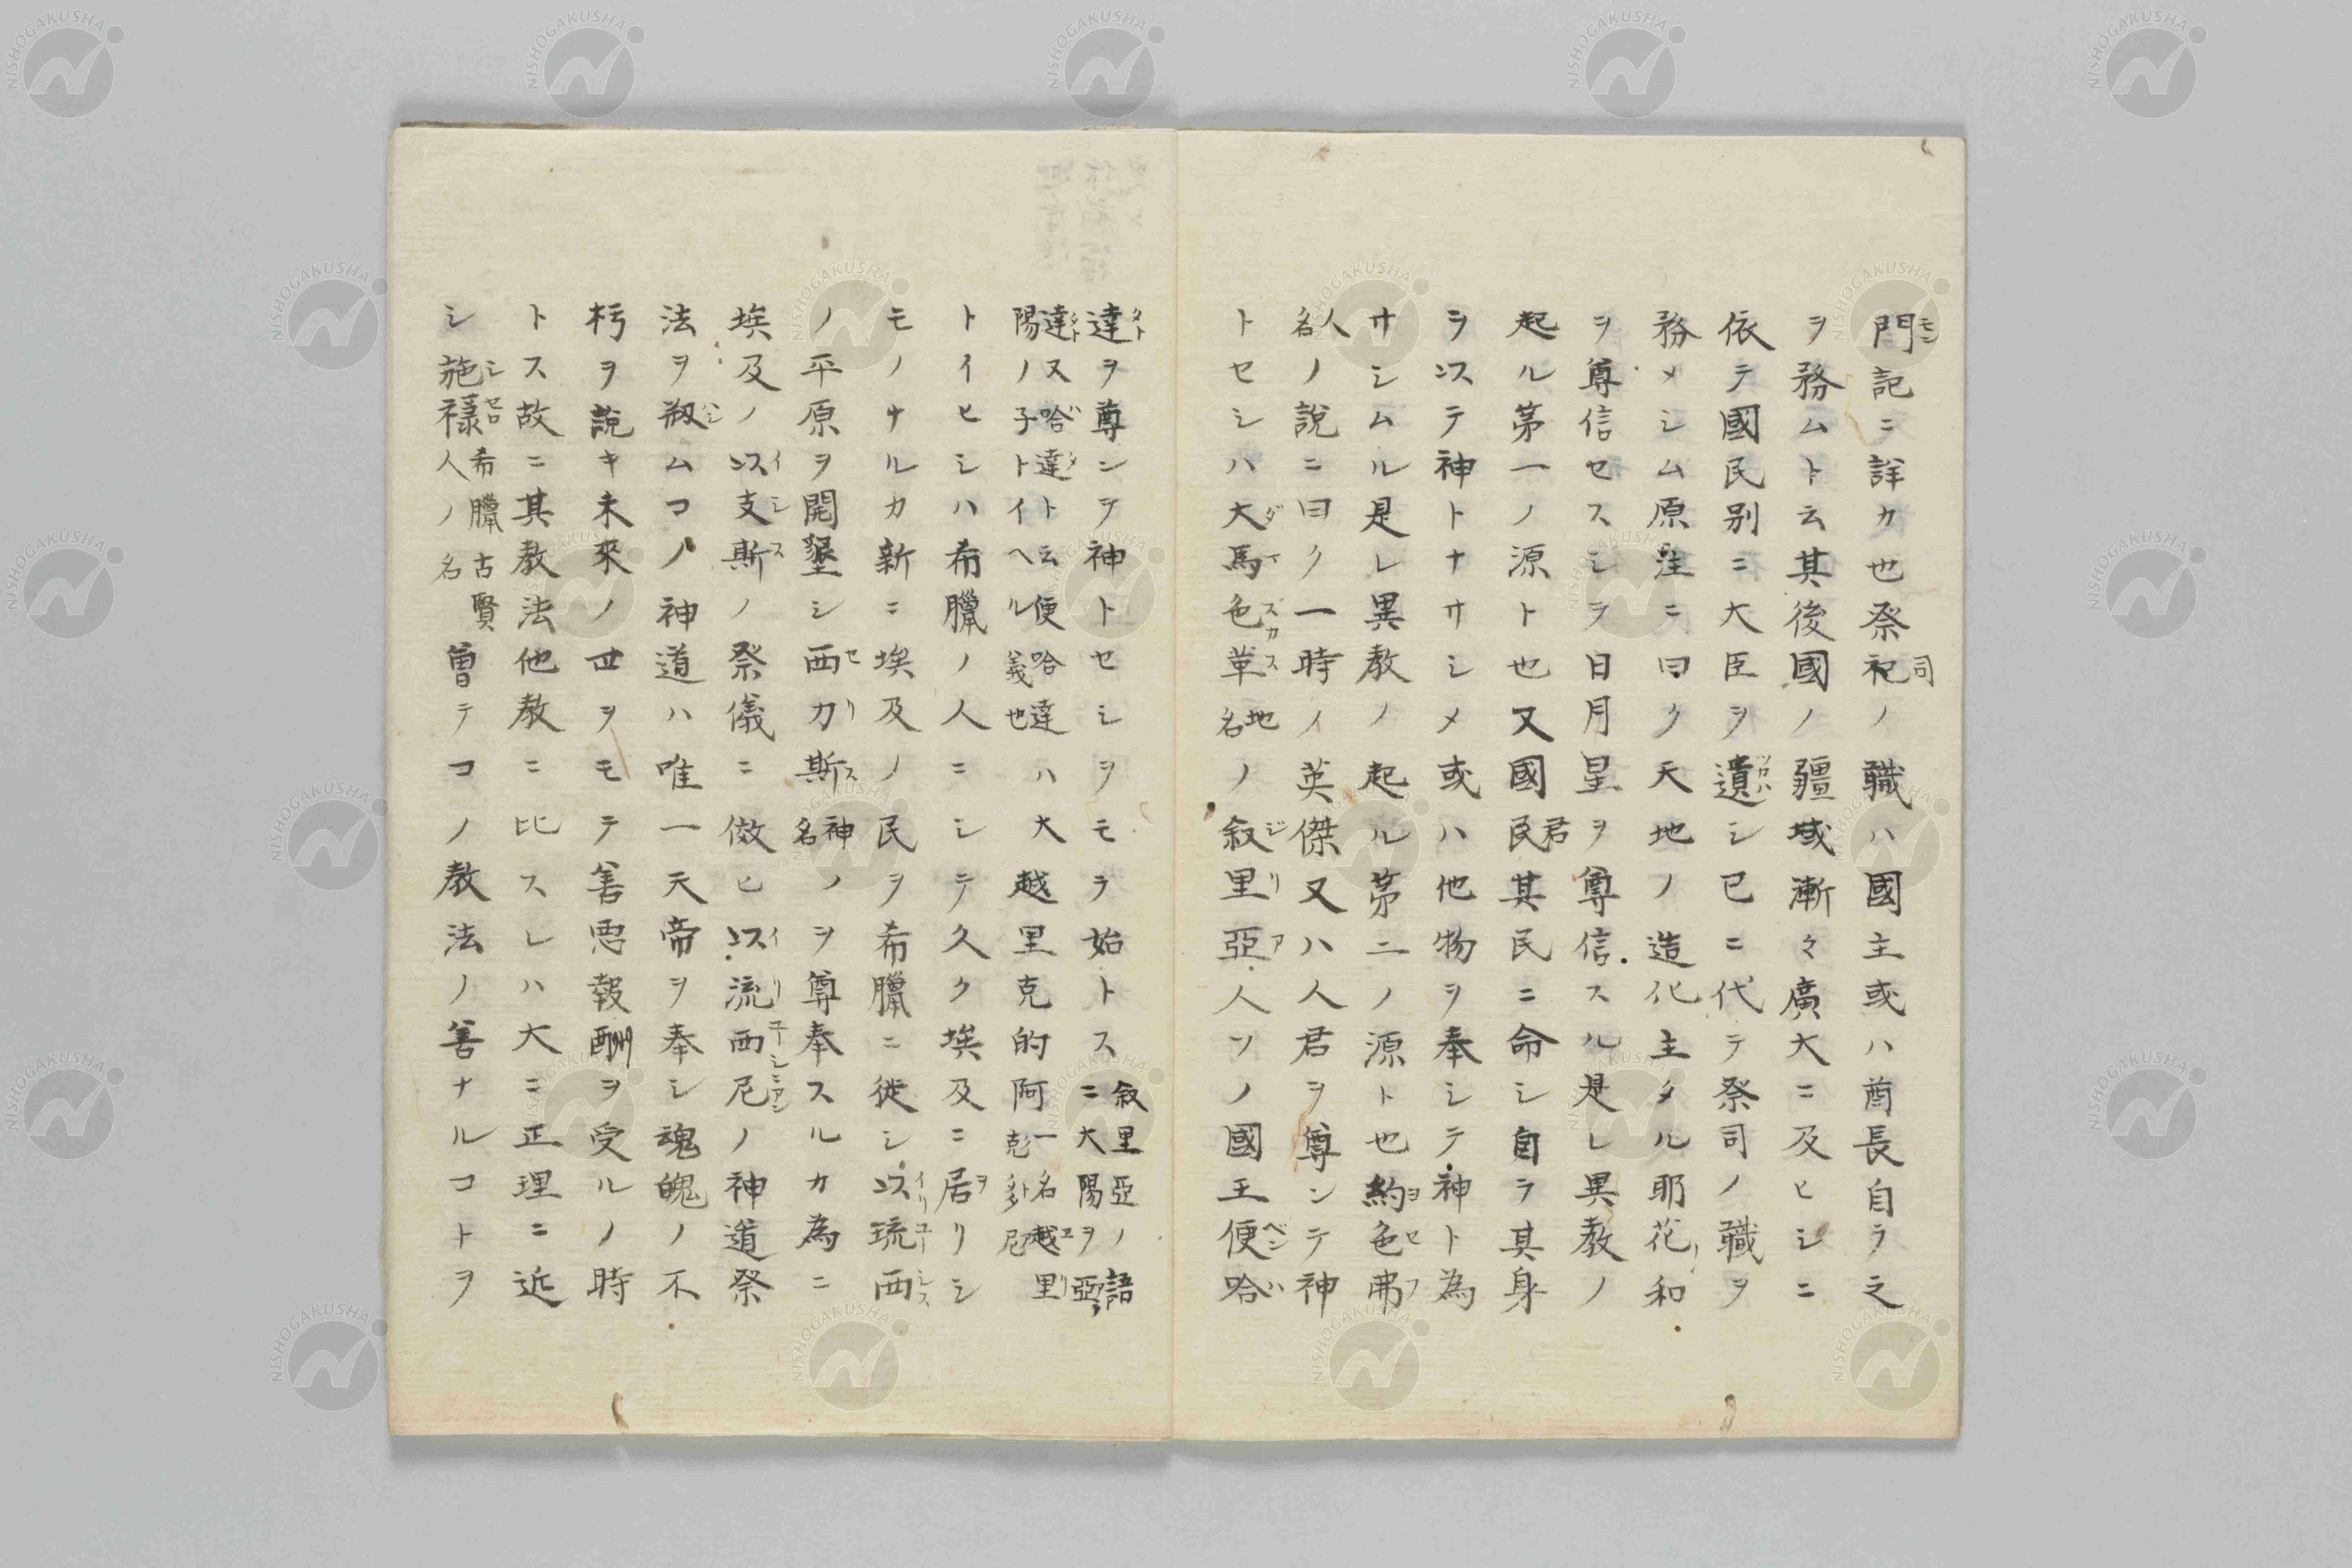 門記ニ詳カ也祭祀司ノ職ハ國主或ハ酋長自ラ之
ヲ務ムト云其後國ノ疆域漸々廣大ニ及ヒシニ
依テ國民別ニ大臣ヲ遺シ已ニ代テ祭司ノ職ヲ
務メシム原注ニ曰ク天地ノ造化主タル耶花和
ヲ尊信セスシヲ日月星ヲ尊信スル是レ異教ノ
起ル第一ノ源ト也又國民君其民ニ命シ自ラ其身
ヲ以テ神トナサシメ或ハ他物ヲ奉シテ神ト為
サシムル是レ異教ノ起ル第二ノ源ト也約色弗
人名ノ說ニ曰ク一時イ英傑又ハ人君ヲ尊ンテ神
トセシハ大馬色革地名ノ叙里亞人ソノ國王便哈
達ヲ尊ンヲ神トセシヲモラ始トス叙里亞ノ語ニ大陽ヲ亞
達又哈達ト云便哈達ハ大陽ノ子トイヘル義也越里克的阿一名越里彭多尼
トイヒシハ希臘ノ人ニシテ久ク埃及ニ居リシ
モノナルカ新ニ埃及ノ民ヲ希臘ニ徙シ以琉西
ノ平原ヲ開墾シ西力斯神名ノヲ尊奉スルカ為ニ
埃及ノ以支斯ノ祭儀ニ倣ヒ以流西尼ノ神道祭
法ヲ剏ムコノ神道ハ唯一天帝ヲ奉シ魂魄ノ不
朽ヲ說キ未來ノ世ヲモテ善悪報酬ヲ受ルノ時
トス故ニ其教法他教ニ比スレハ大ニ正理ニ近
シ施祿希臘古賢人ノ名曽テコノ教法ノ善ナルコトヲ